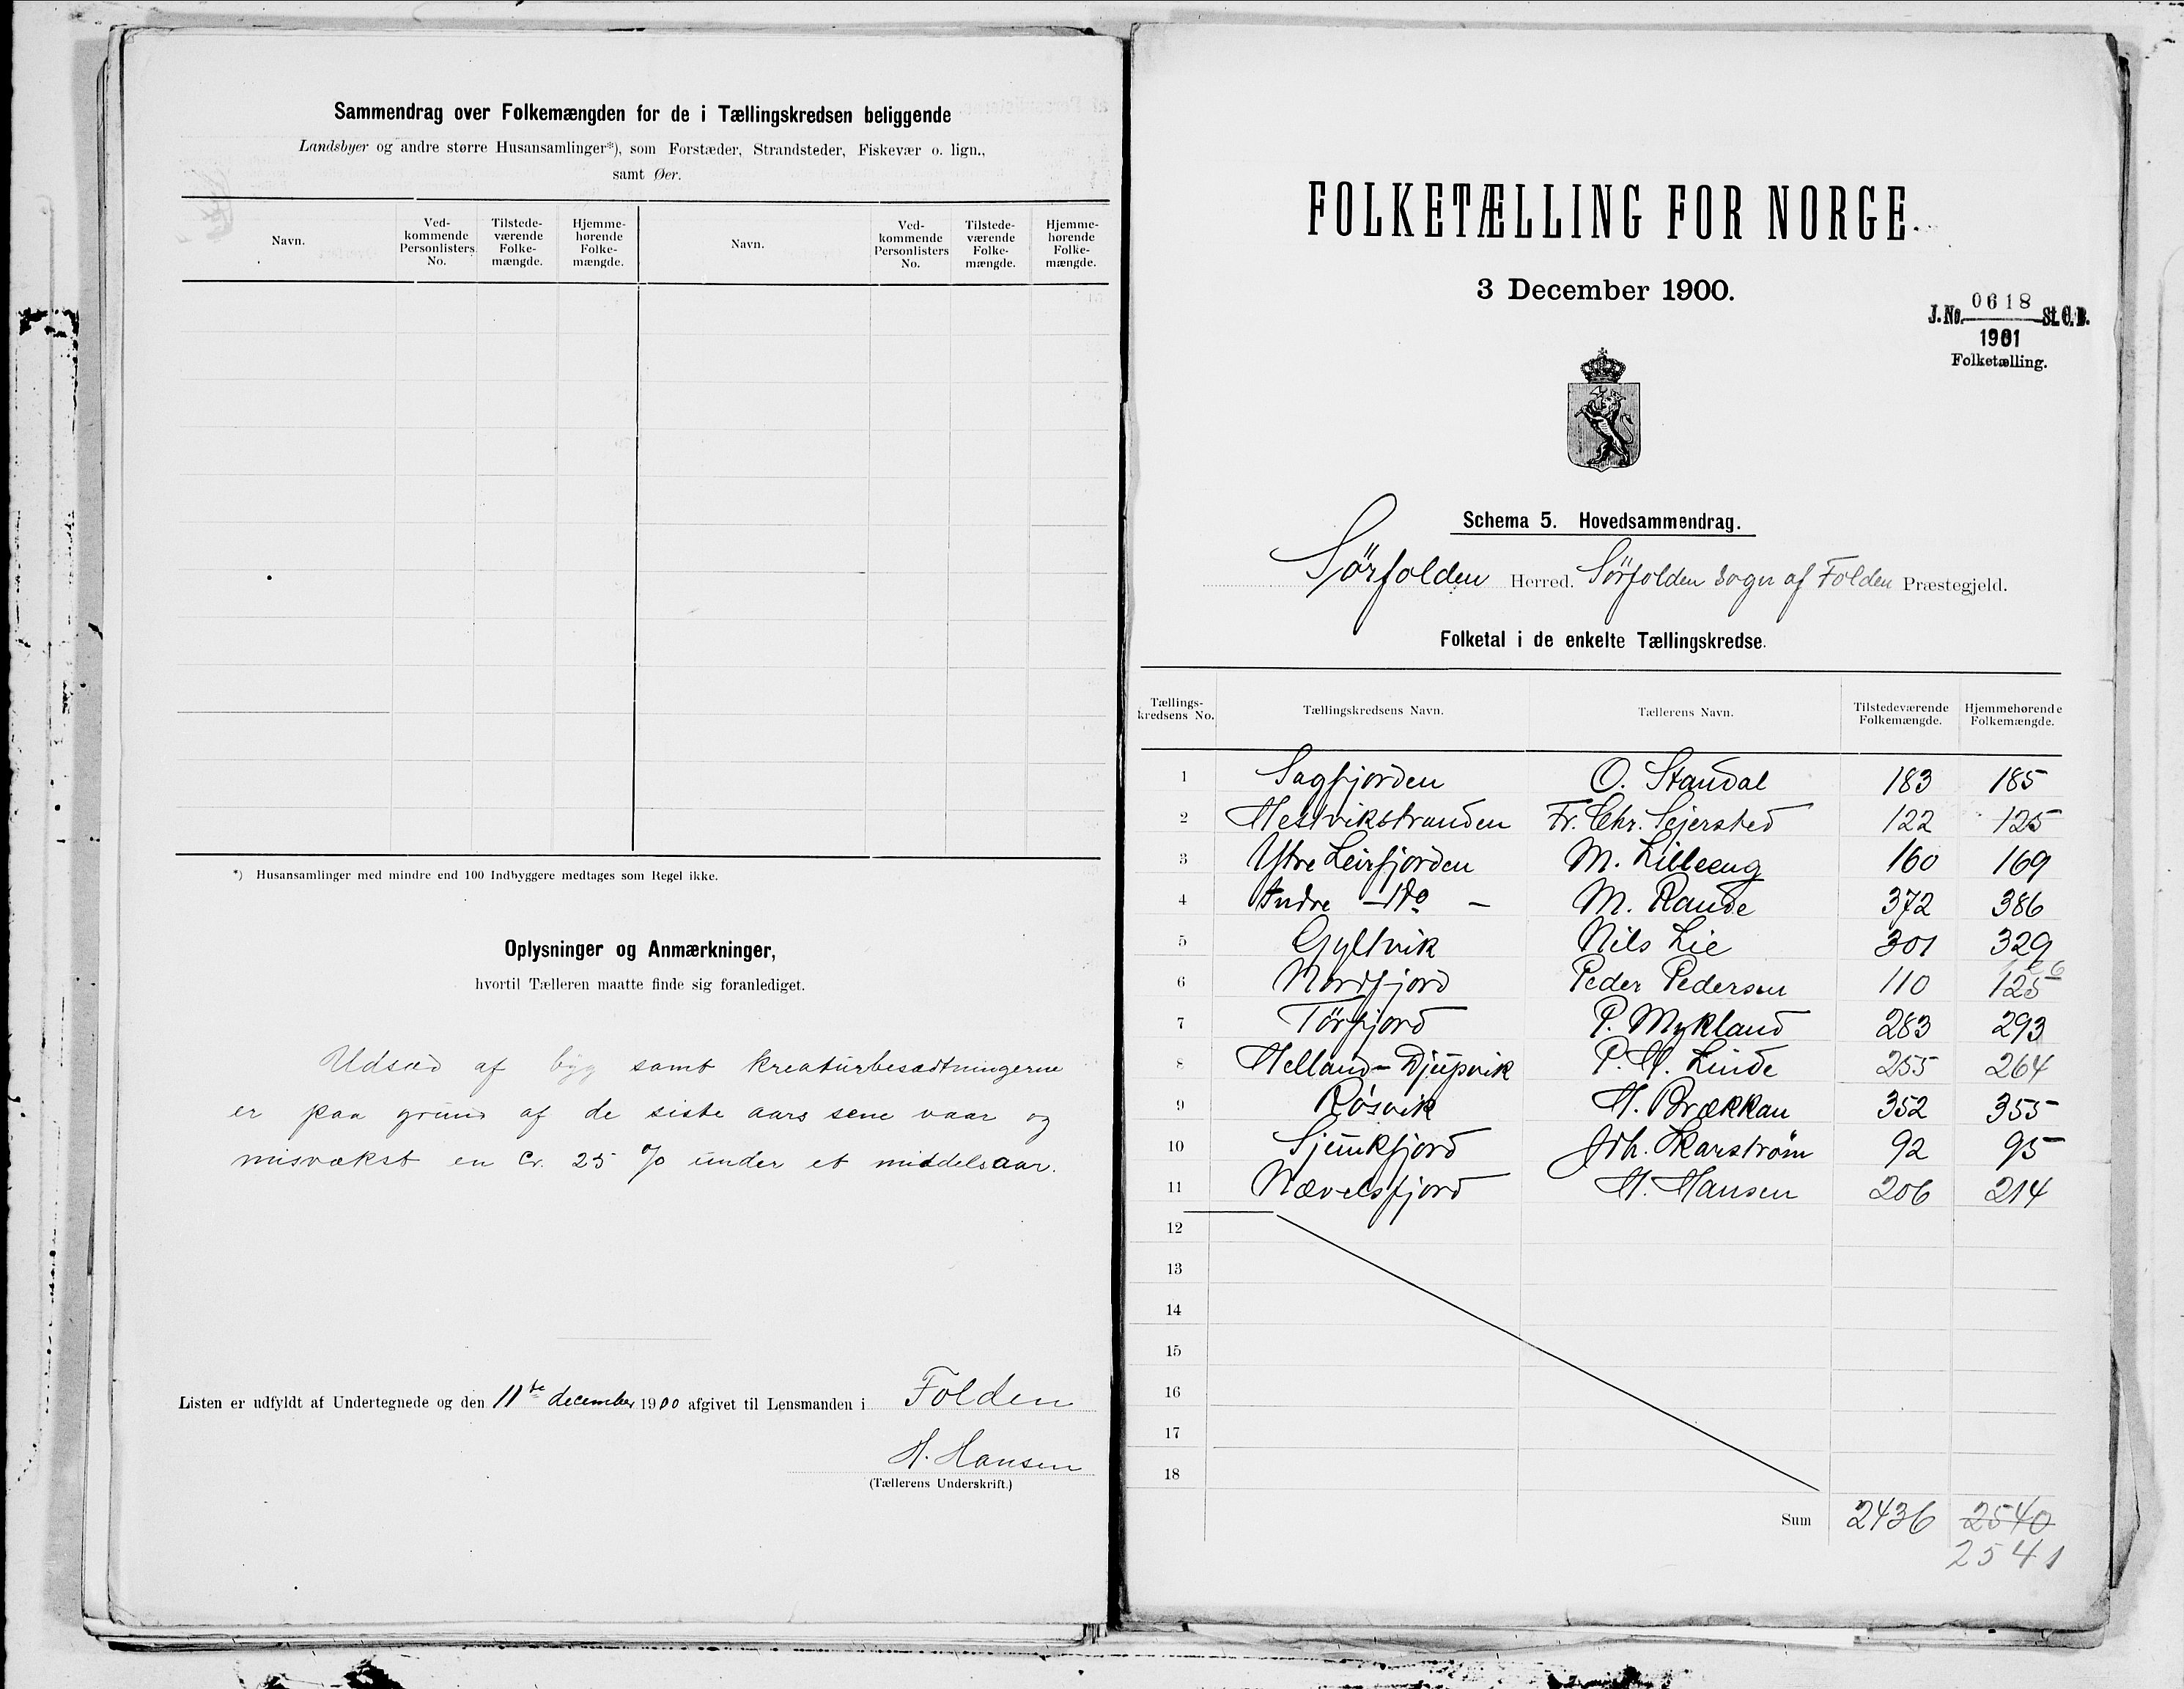 Sammendrag over Folkemængden for de i Tællingskredsen beliggende
Landsbyer og andre større Husansamlinger*), som Forstæder, Strandsteder, Fiskevær o. lign.,
samt Øer.
Navn. Ved-kommende Personlisters No. Tilstede-værende Folke-mængde. Hjemme-hørende Folke-mængde. Navn. Ved-kommende Personlisters No. Tilstede-værende Folke-mængde. Hjemme-hørende Folke-mængde.
*) Husansamlinger med mindre end 100 Indbyggere medtages som Regel ikke.
Oplysninger og Anmærkninger,
hvortil Tælleren maatte finde sig foranlediget.
Udsæd af byg samt kreaturbesætningerne
er paa grund af de siste aars sene vaar og
misvækst en Cr. 25 % under et middelsaar.
Listen er udfyldt af Undertegnede og den 11te december 1900 afgivet til Lensmanden i Folden
H. Hansen
(Tællerens Underskrift.)
FOLKETÆLLING FOR NORGE.
3 December 1900.
J. No. 0618 St. C. B.
1901
Folketælling.
Schema 5. Hovedsammendrag.
Sörfolden Herred. Sörfolden Sogn af Folden Præstegjeld.
Folketal i de enkelte Tællingskredse.
Tællings-kredsens No. Tællingskredsens Navn. Tællerens Navn. Tilstedeværende Folkemængde. Hjemmehørende Folkemængde.
1 Sagfjorden O. Standal 183 185
2 Hestvikstranden Fr. Chr. Sejersted 122 125
3 Ytre Leirfjorden M. Lilleeng 160 169
4 Indre - Do - M. Rande 372 386
5 Gyltvik Nils Lie 301 329
6 Nordfjord Peder Pedersen 110 125 6
7 Tørfjord P. Mykland 283 293
8 Helland-Djupvik P. H. Linde 255 264
9 Rösvik H. Brækkan 352 355
10 Sjunkfjord Joh. Skarstrøm 92 95
11 Nævelsfjord H. Hansen 206 214
12
13
14
15
16
17
18
Sum 2436 2540
2541